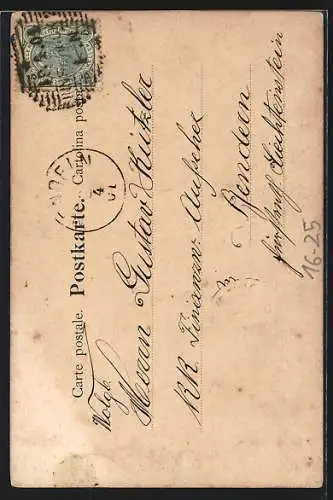 Carte postale. Postkarte. Cartolina postale.
Wolgb.
Herrn Gustav Kützler
KK. Finanzw. Aufseher
Bendern
Fürstent. Liechtenstein
4
01
16-25